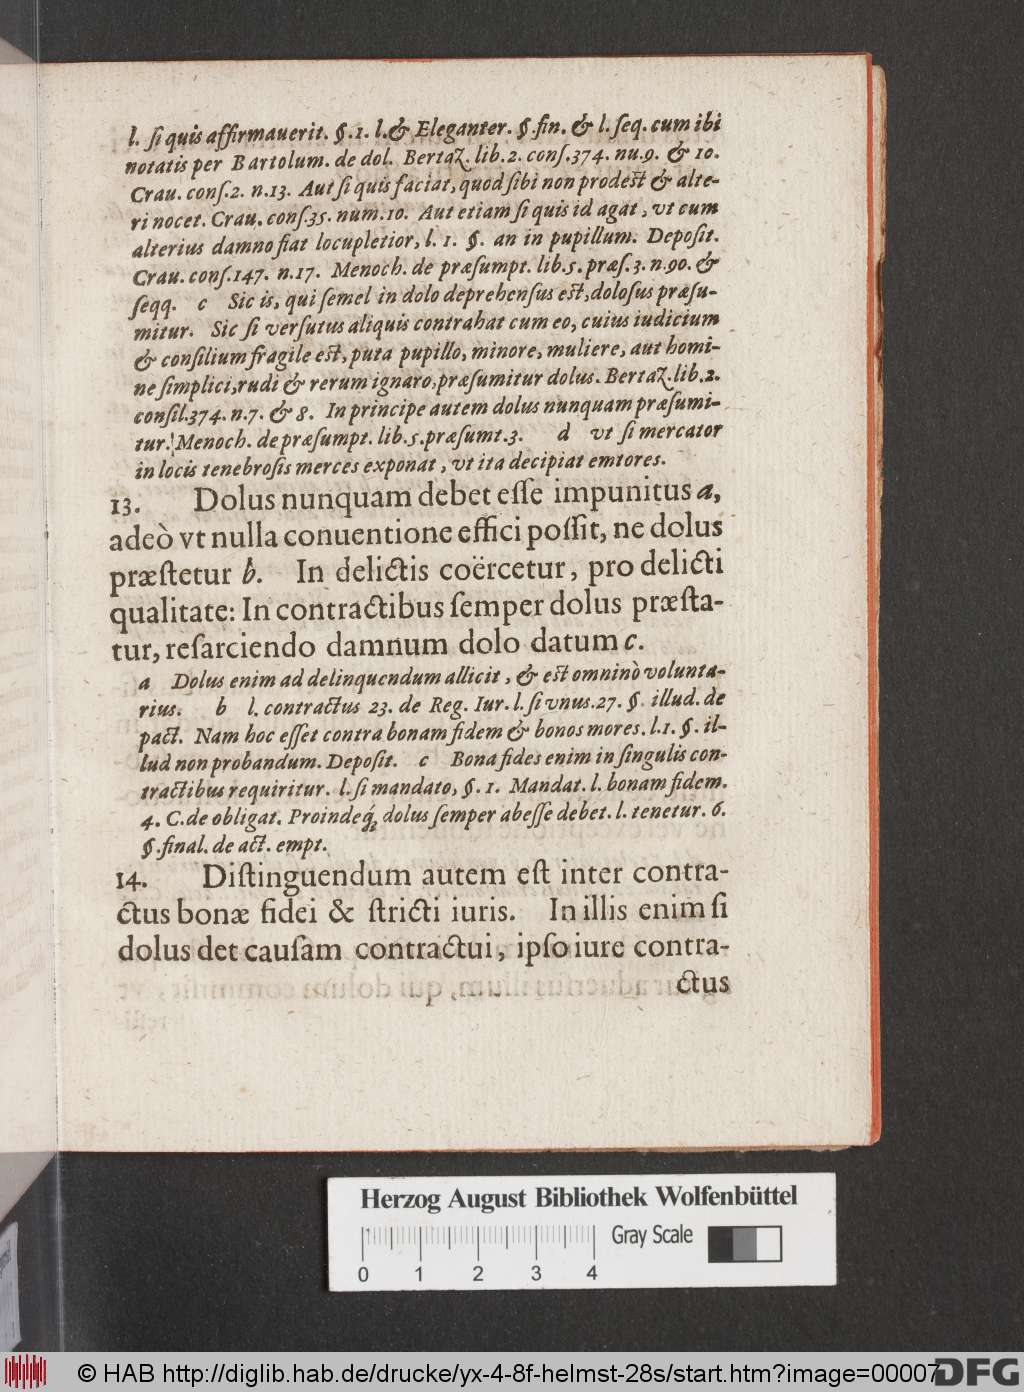 l. ſi quis affirmauerit. §. 1. l. & Eleganter. §. fin. & l. ſeq. cum ibi
notatis per Bartolum. de dol. Bertaz. lib. 2. conſ. 374. nu. 9. & 10.
Crau. conſ. 2. n. 13. Aut ſi quis faciat, quod ſibi non prodest & alte-
ri nocet. Crau. conſ. 35. num. 10. Aut etiam ſi quis id agat, vt cum
alterius damno fiat locupletior, l. 1. §. an in pupillum. Depoſit.
Crau. conſ. 147. n. 17. Menoch. de præſumpt. lib. 5. præſ. 3. n. 90. &
ſeqq. c Sic is, qui ſemel in dolo deprehenſus est, doloſus præſu-
mitur. Sic ſi verſutus aliquis contrahat cum eo, cuius iudicium
& conſilium fragile est, puta pupillo, minore, muliere, aut homi-
ne ſimplici, rudi & rerum ignaro, præſumitur dolus. Bertaz. lib. 2.
conſil. 374. n. 7. & 8. In principe autem dolus nunquam præſumi-
tur. Menoch. de præſumpt. lib. 5. præſumt. 3. d vt ſi mercator
in locis tenebroſis merces exponat, vt ita decipiat emtores.
13. Dolus nunquam debet eſſe impunitus a,
adeò vt nulla conuentione effici poſſit, ne dolus
præſtetur b. In delictis coërcetur, pro delicti
qualitate: In contractibus ſemper dolus præſta-
tur, reſarciendo damnum dolo datum c.
a Dolus enim ad delinquendum allicit, & est omninò volunta-
rius. b l. contractus 23. de Reg. Iur. l. ſi vnus. 27. §. illud. de
pact. Nam hoc eſſet contra bonam fidem & bonos mores. l. 1. §. il-
lud non probandum. Depoſit. c Bona fides enim in ſingulis con-
tractibus requiritur. l. ſi mandato, §. 1. Mandat. l. bonam fidem.
4. C. de obligat. Proindeq́; dolus ſemper abeſſe debet. l. tenetur. 6.
§. final. de act. empt.
14. Diſtinguendum autem eſt inter contra-
ctus bonæ fidei & ſtricti iuris. In illis enim ſi
dolus det cauſam contractui, ipſo iure contra-
ctus
Herzog August Bibliothek Wolfenbüttel
Gray Scale
0 1 2 3 4
© HAB http://diglib.hab.de/drucke/yx-4-8f-helmst-28s/start.htm?image=00007
DFG